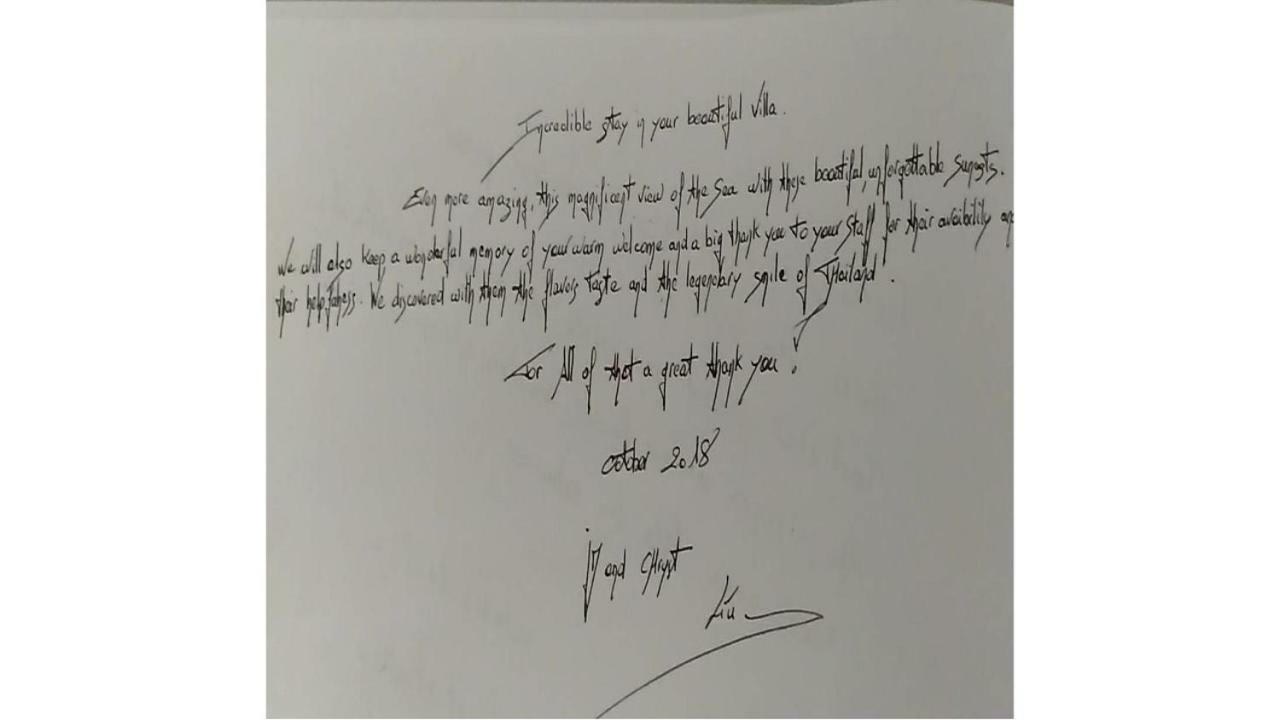 Incredible stay in your beautiful Villa.
Even more amazing, this magnificent view of the Sea with these beautiful, unforgettable sunsets.
We will also keep a wonderful memory of your warm welcome and a big thank you to your staff for their avaibility
their helpfulness. We discovered with them the flavors taste and the legendary smile of Thailand.
For All of that a great thank you!
october 2018
and